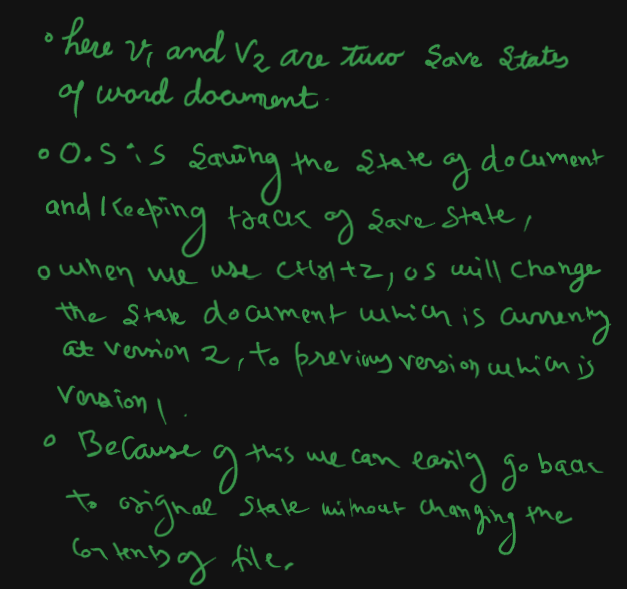 • here V1 and V2 are two Save States
of word document.
• O.S is Saving the State of document
and Keeping track of Save State,
• when we use ctrl+z, os will change
the State document which is currently
at version 2, to previous version which is
Version 1.
• Because of this we can easily go back
to original State without changing the
Contents of file.